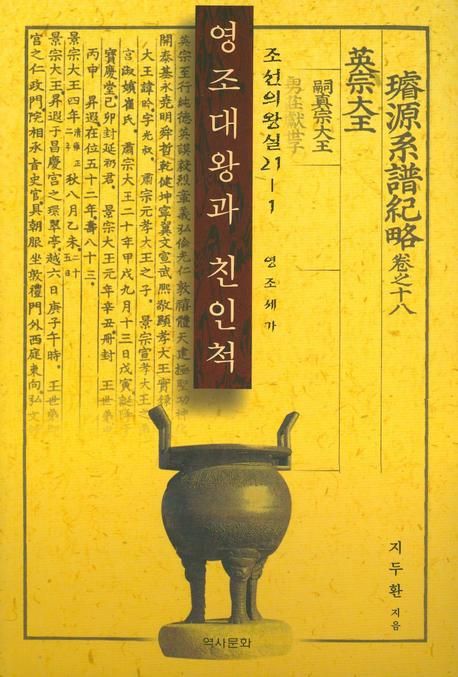 영조대왕과 친인척
조선의 왕실 21-1
영조세가
璿源系譜紀略 卷之十八
英宗大王
嗣眞宗大王
男莊獻世子
英宗至行純德英謨毅烈章義弘倫光仁敦禧體天建極聖功神化
開泰基永堯明舜哲乾健坤寧翼文宣武熙敬顯孝大王實錄
大王諱昑字光叔。肅宗元孝大王之子。景宗宣孝大王之
宮淑嬪崔氏。肅宗大王二十年甲戌九月十三日戊寅誕
寶慶堂己卯封延礽君。景宗大王元年辛丑冊封王世弟
丙申昇遐在位五十二年。壽八十三。
景宗大王四年秋八月乙未。
景宗大王昇遐于昌慶宮之環翠亭。越六日庚子午時。王世弟
宮之仁政門。院相承旨史官具朝服坐敦禮門外西庭東向
지두환 지음
역사문화